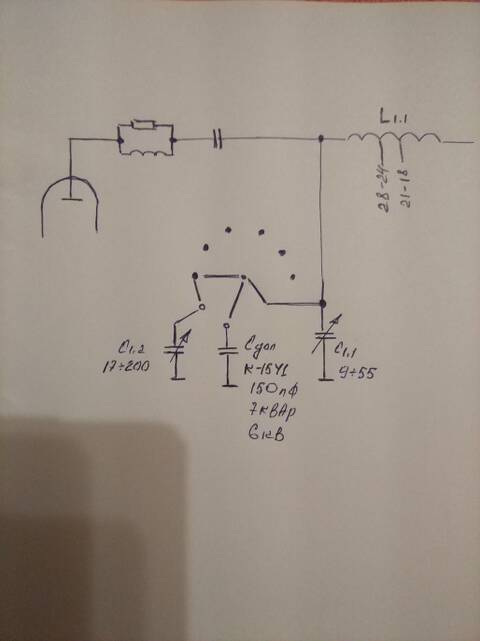 L1.1
28-24
21-18
C1.2
17÷200
Cдоп
К-15У1
150пФ
7кВАр
6кВ
C1.1
9÷55